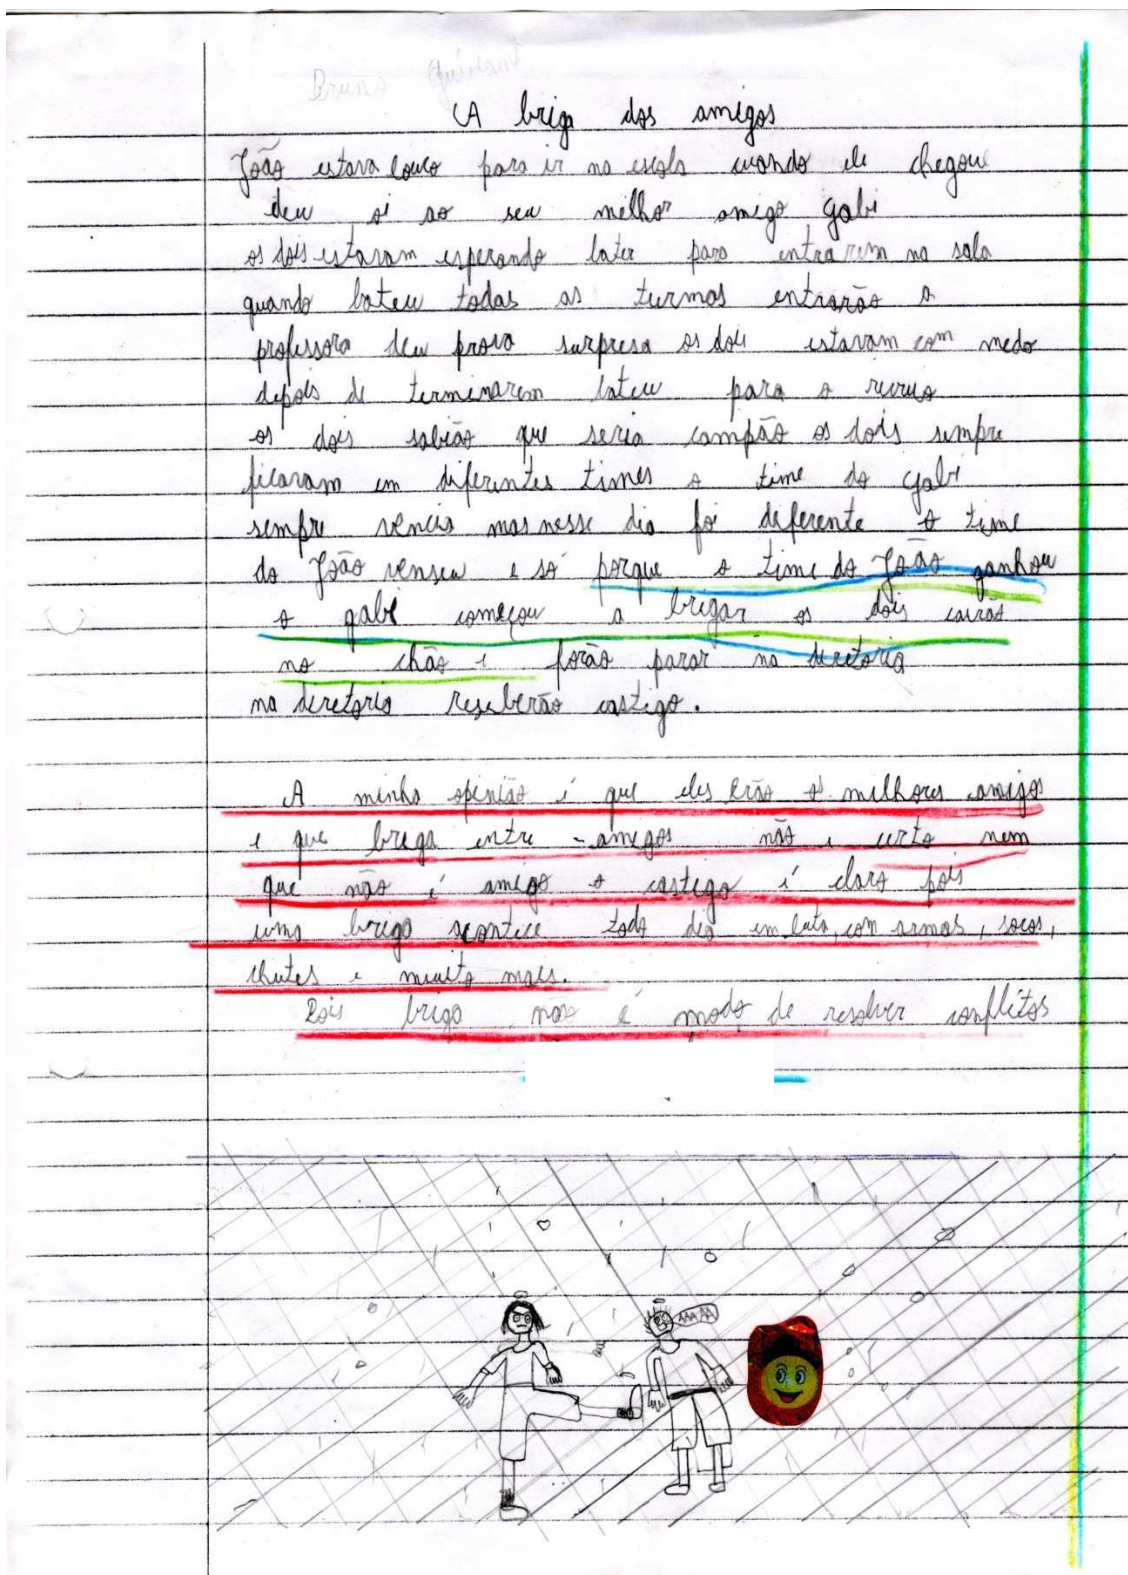 Bruna
A briga dos amigos
João estava louco para ir na escola cuando ele chegou
deu oi ao seu melhor amigo gabi
os dois estavam esperando bater para entrarem na sala
quando bateu todas as turmas entrarão a
professora deu prova surpresa os dois estavam com medo
depois de terminarem bateu para o recreio
os dois sabião que seria campão os dois sempre
ficavam em diferentes times o time do gabi
sempre vencia mas nesse dia foi diferente o time
do João venseu e só porque o time do João ganhou
o gabi começou a brigar os dois cairão
no chão e forão parar na diretoria
na diretoria reseberão castigo.
A minha opinião é que eles erão os milhores amigos
e que briga entre amigos não e certo nem
que não é amigo o castigo é claro pois
uma briga acontece todo dia em luta, com armas, socos,
chutes e muito mais.
Pois briga não é modo de resolver conflitos
AAAAA